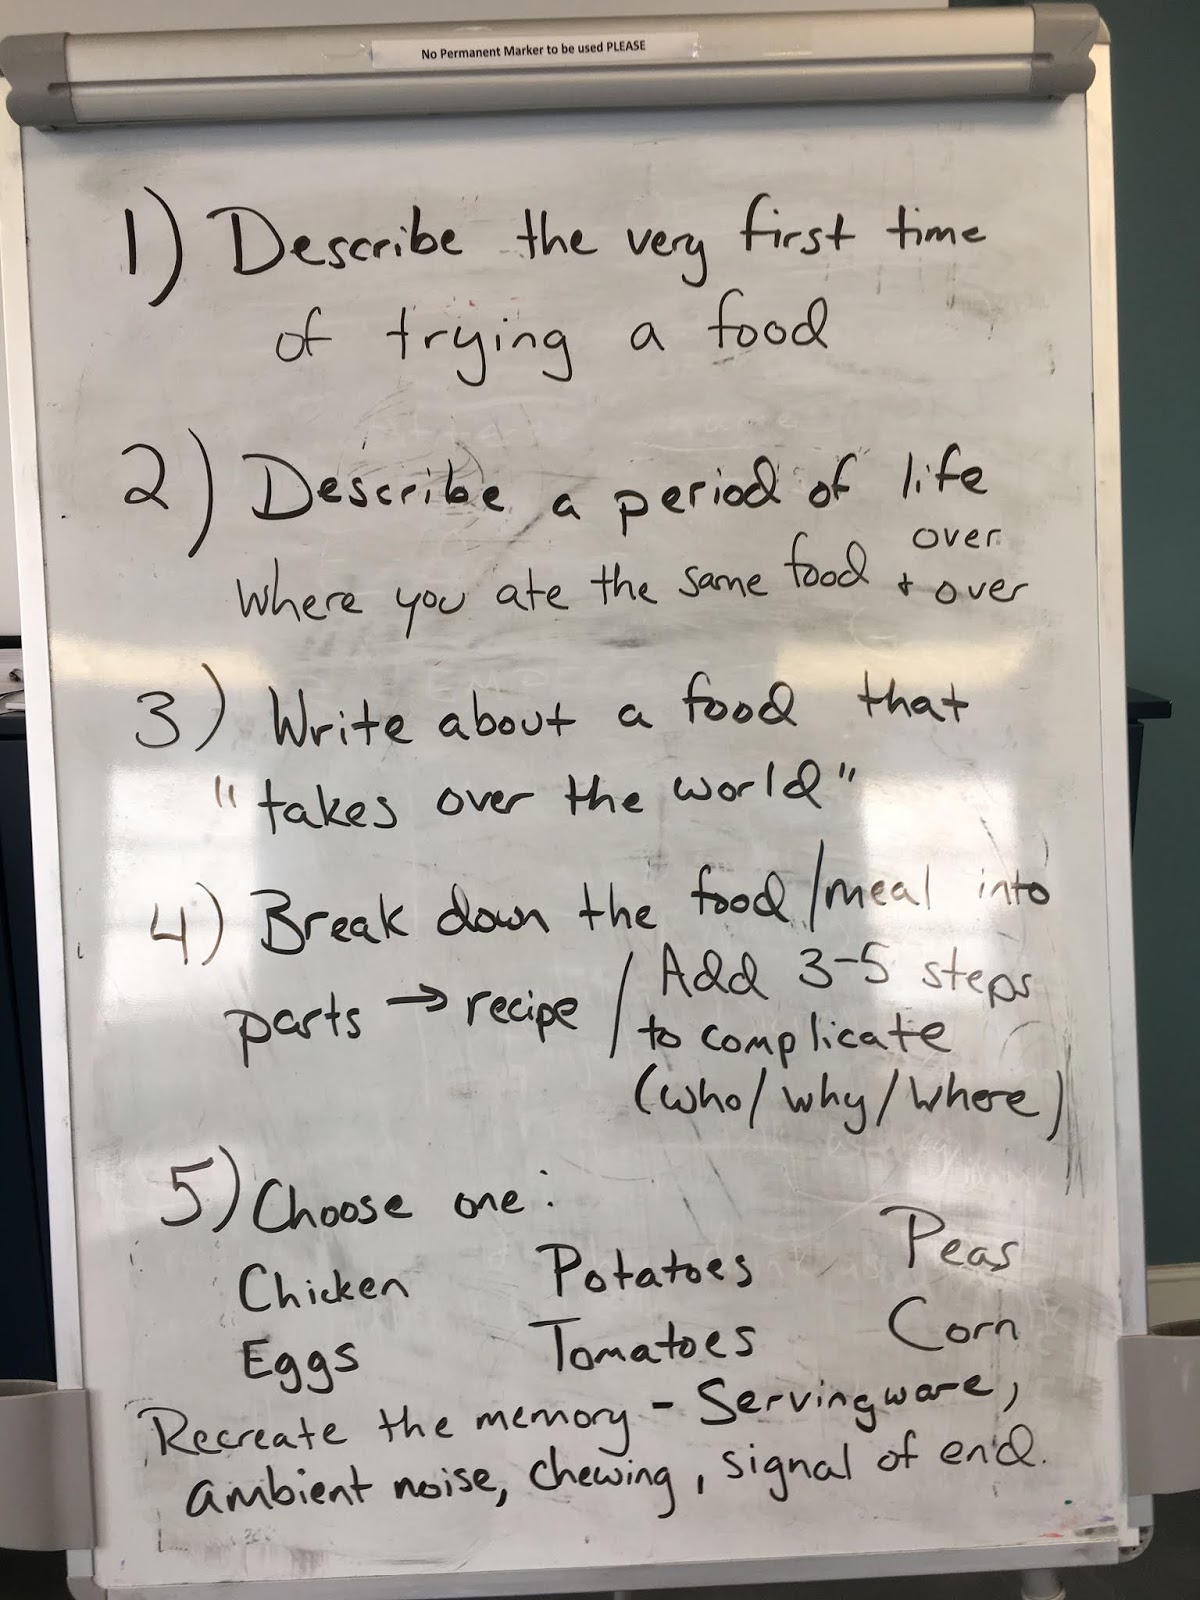 No Permanent Marker to be used PLEASE
1) Describe the very first time
of trying a food
2) Describe a period of life
where you ate the same food over
+ over
3) Write about a food that
"takes over the world"
4) Break down the food/meal into
parts → recipe / Add 3-5 steps
to complicate
(who/why/where)
5) Choose one:
Chicken Potatoes Peas
Eggs Tomatoes Corn
Recreate the memory - Servingware,
ambient noise, chewing, signal of end.